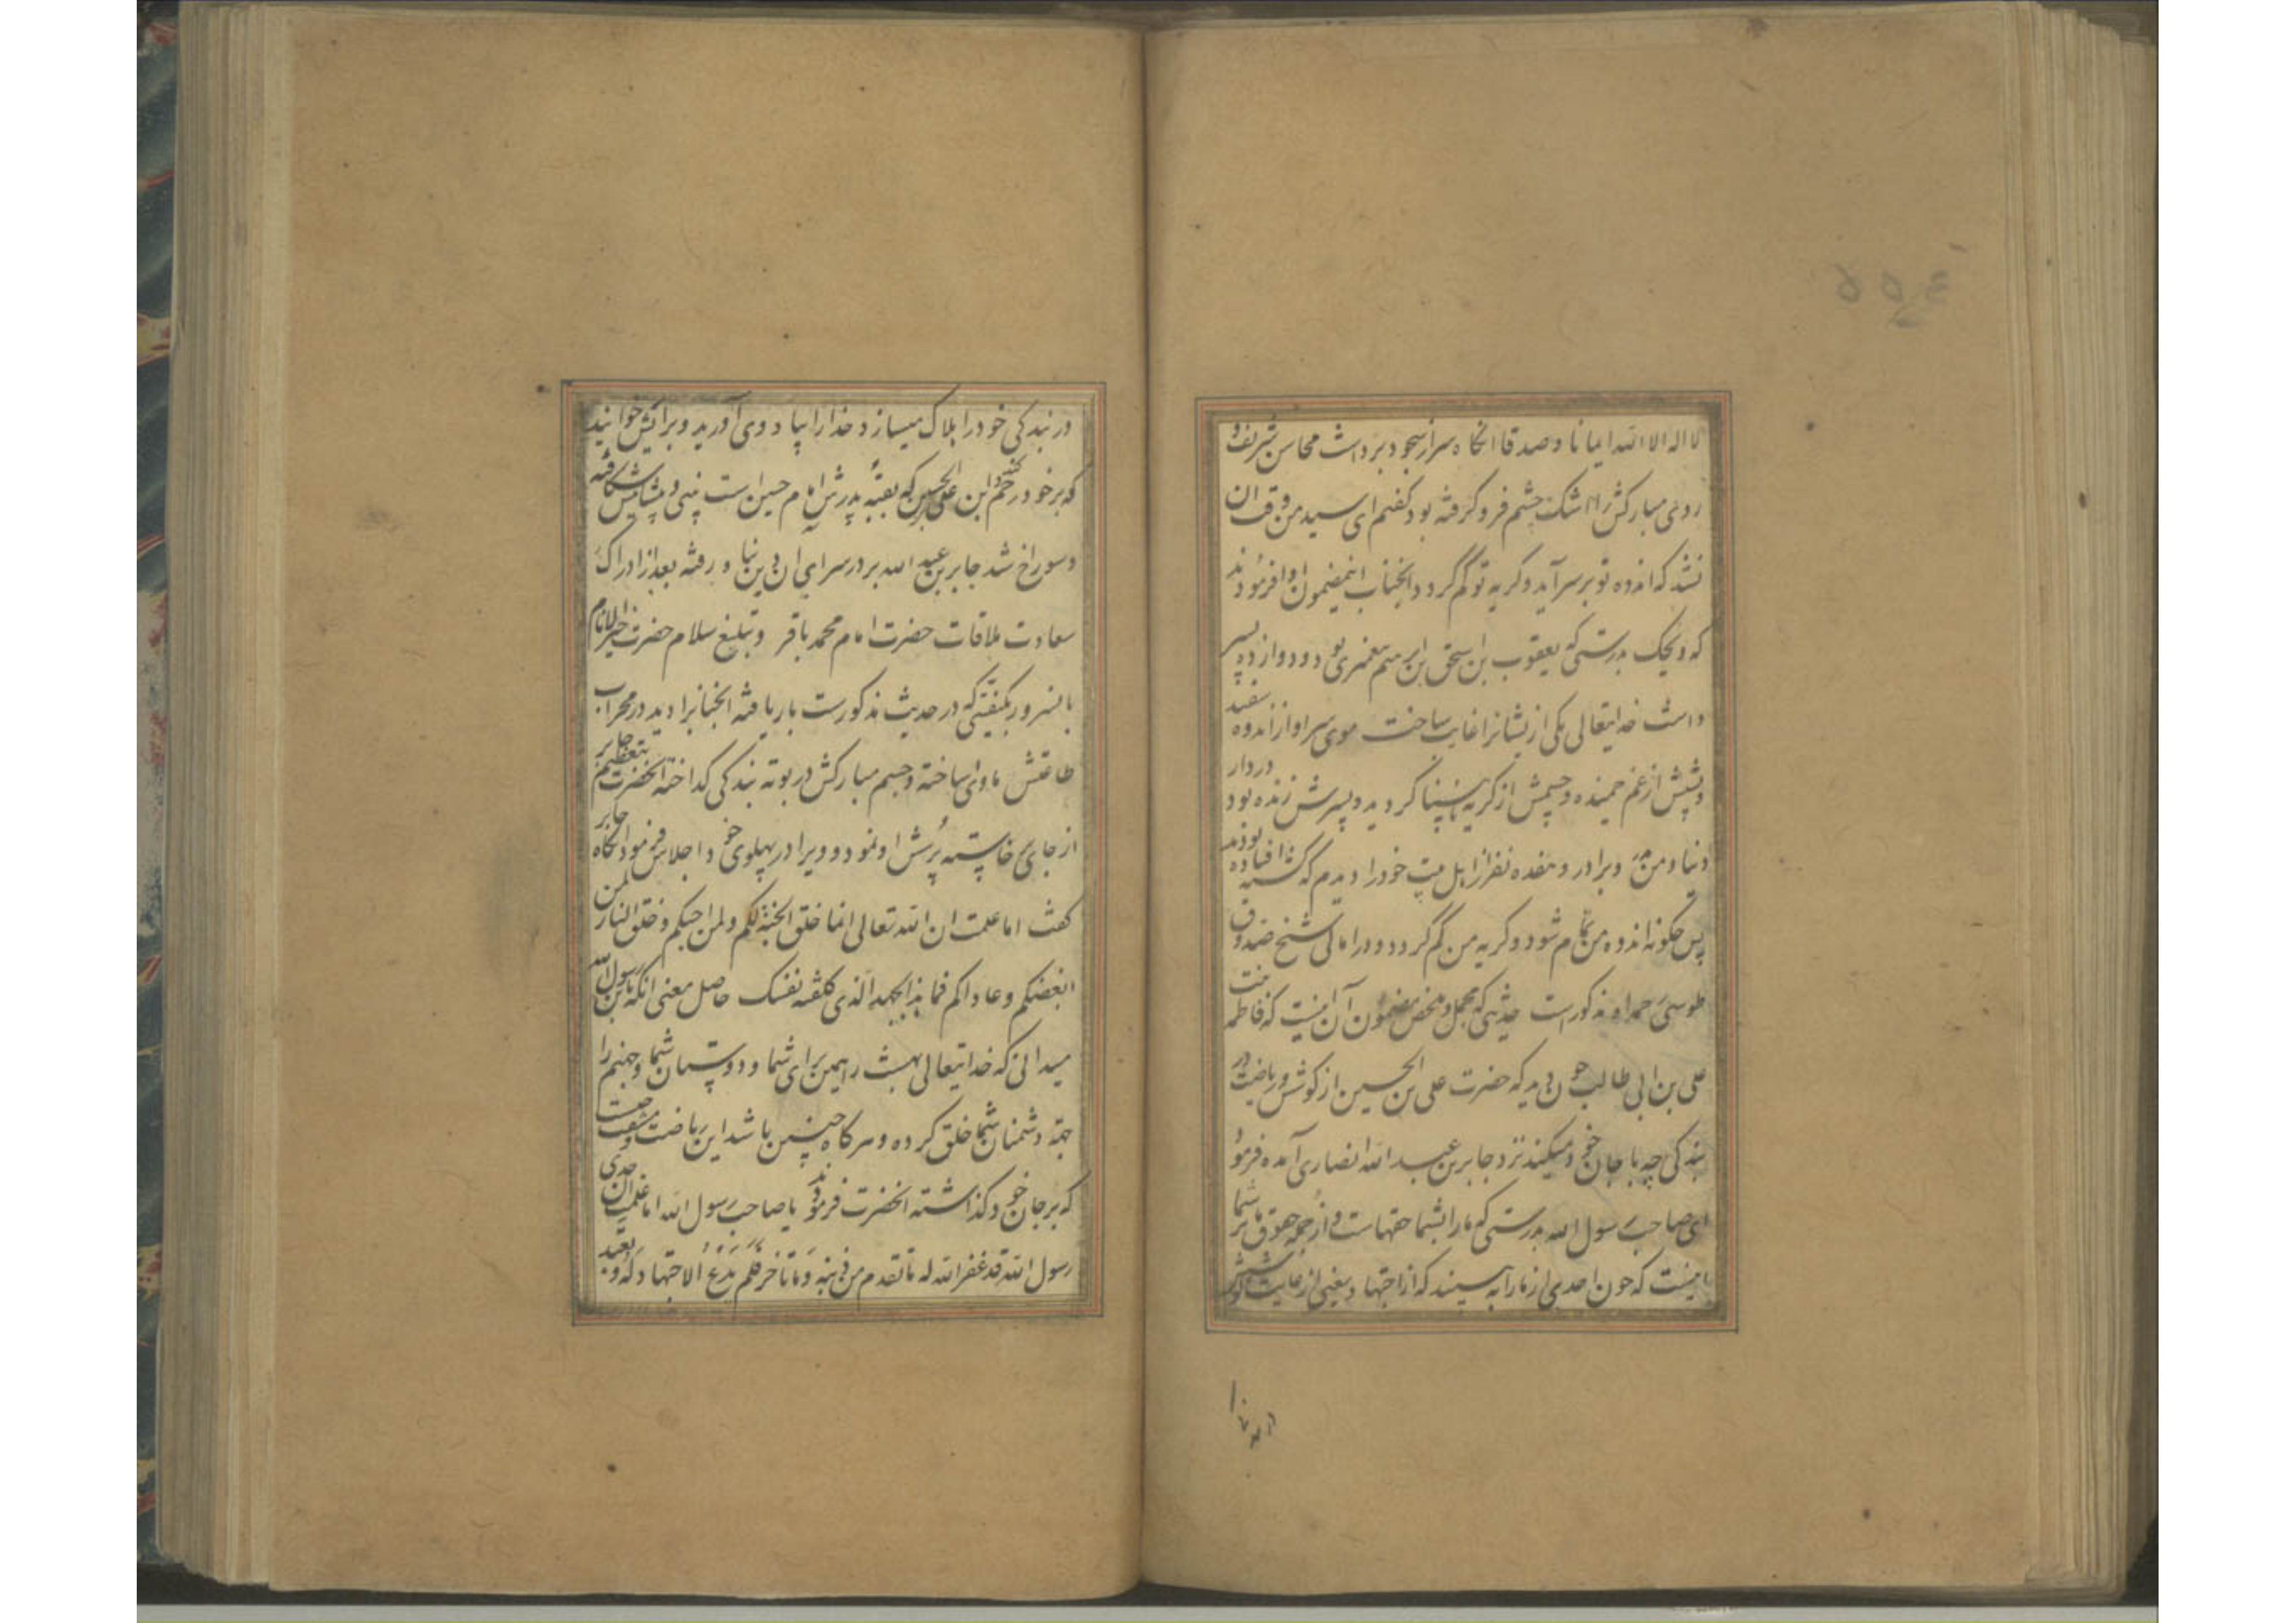 لا اله الا الله ایمانا و صدقا انکاه سر از سجود برداشت محاسن شریف و
روی مبارکش را اشک چشم فرو کرفته بود کفتم ای سید من وقت آن
نشد که اندوه تو بر سر آید و کریه تو کم کردد و انجناب اینمضمون را فرمودند
که ویحک بدرستی که یعقوب بن اسحق بن ابرهیم پیغمبری بود و دوازده پسر
داشت خدایتعالی یکی از یشانرا غایب ساخت موی سر او از اندوه سفید
و پشتش از غم خمیده و چشمش از کریه نابینا کردید و پسرش زنده بود در دار
دنیا و من پدر و برادر و هفده نفر از اهل بیت خود را دیدم که کشته افتاده بودند
پس چکونه اندوه من تمام شود و کریه من کم کردد و در امالی شیخ صدوق
طوسی مذکور است حدیثی که مجمل و ملخص مضمون آن اینست که فاطمه بنت
علی بن ابی طالب چون دید که حضرت علی بن الحسین از کوشش و ریاضت در
بندکی چه با جان خود میکند نزد جابر بن عبد الله انصاری آمده فرمود
ای صاحب رسول الله بدرستی که ما را بشما حقهاست و از جمله حقوق ما بر شما
اینست که چون احدی از ما را به بینند که از اجتهاد یعنی از غایت کوشش
در بندکی خود را هلاک میسازد خدا را بیاد وی آورید و بر آتش خوانید
که بر خود رحم کند و این علی بن الحسین که بقیه پدرش امام حسین است بینی و پیشانیش شکافته
و سوراخ شد جابر بن عبد الله بر در سرای آن دین پناه رفته بعد از ادراک
سعادت ملاقات حضرت امام محمد باقر و تبلیغ سلام حضرت خیر الانام
بانسرور بکیفیتی که در حدیث مذکورست بار یافته انجنابرا دید در محراب
طاعتش ماوای ساخته و جسم مبارکش در بوته بندکی کداخته انحضرت بتعظیم جابر
از جای خاسته پرسش او نمود و ویرا در پهلوی خود اجلاس فرمود انکاه جابر
کفت اما علمت ان الله تعالی انما خلق الجنة لکم و لمن احبکم و خلق النار لمن
ابغضکم و عاداکم فما هذا الجهد الذی کلفته نفسک حاصل معنی انکه یا بن رسول الله
میدانی که خدایتعالی بهشت را همین برای شما و دوستان شما و جهنم را
جهة دشمنان شما خلق کرده و هر کاه چنین باشد این ریاضت و مشقت چیست
که بر جان خود کذاشته انحضرت فرمودند یا صاحب رسول الله اما علمت ان جدی
رسول الله قد غفر الله له ما تقدم من ذنبه و ما تاخر فلم یدع الاجتهاد له و تعبد